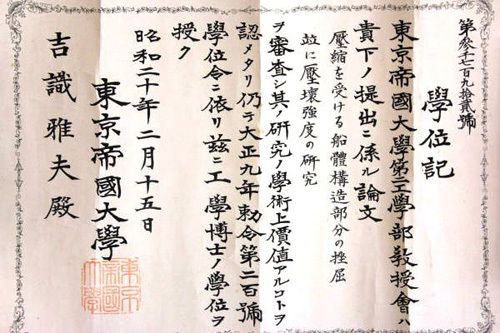 第參千七百九拾貳號
學位記
東京帝國大學第二工學部教授會ハ
貴下ノ提出ニ係ル論文
壓縮を受ける船體構造部分の挫屈
竝に壓壞強度の研究
ヲ審査シ其ノ研究ノ學術上價値アルコトヲ
認メタリ仍テ大正九年勅令第二百號
學位令ニ依リ茲ニ工學博士ノ學位ヲ
授ク
昭和二十年二月十五日
東京帝國大學
吉識雅夫殿
東京帝國大學